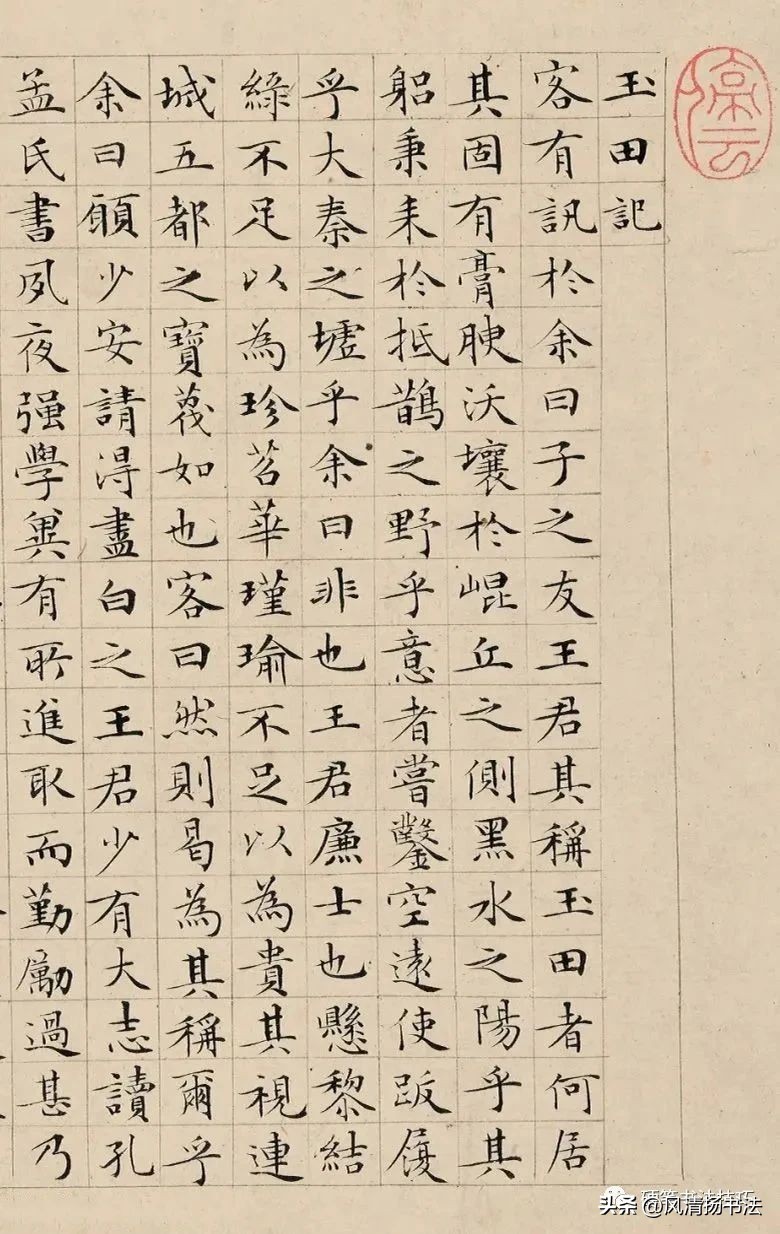 玉田記
客有訊於余曰子之友王君其稱玉田者何居
其固有膏腴沃壤於崐丘之側黑水之陽乎其
躬秉耒於抵鵲之野乎意者嘗鑿空遠使跋履
乎大秦之墟乎余曰非也王君廉士也懸黎結
綠不足以為珍苕華瑾瑜不足以為貴其視連
城五都之寶蔑如也客曰然則曷為其稱爾乎
余曰願少安請得盡白之王君少有大志讀孔
孟氏書夙夜强學冀有所進取而勤勵過甚乃
头条 @风清扬书法